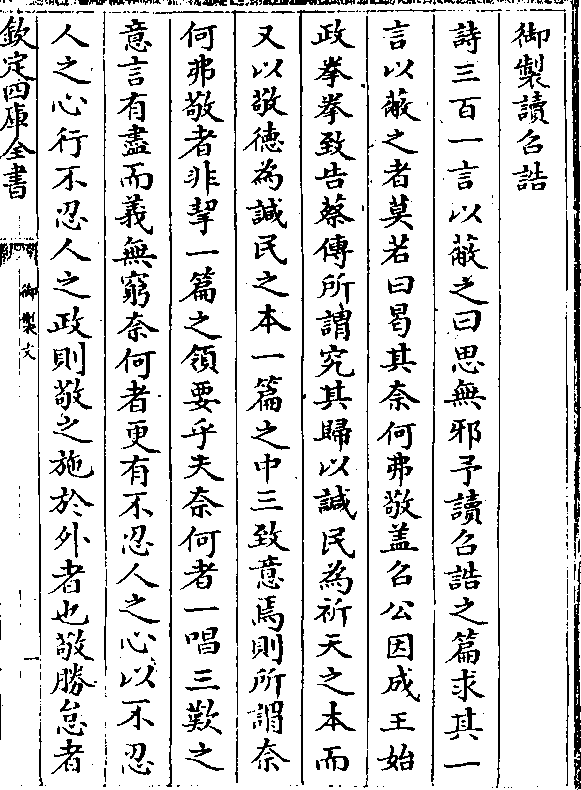 御製讀召誥
詩三百一言以蔽之曰思無邪予讀召誥之篇求其一
言以蔽之者莫若曰曷其奈何弗敬盖召公因成王始
政拳拳致告蔡傳所謂究其歸以諴民為祈天之本而
又以敬德為諴民之本一篇之中三致意焉則所謂奈
何弗敬者非挈一篇之領要乎夫奈何者一唱三歎之
意言有盡而義無窮奈何者更有不忍人之心以不忍
人之心行不忍人之政則敬之施於外者也敬勝怠者
欽定四庫全書
御製文
一